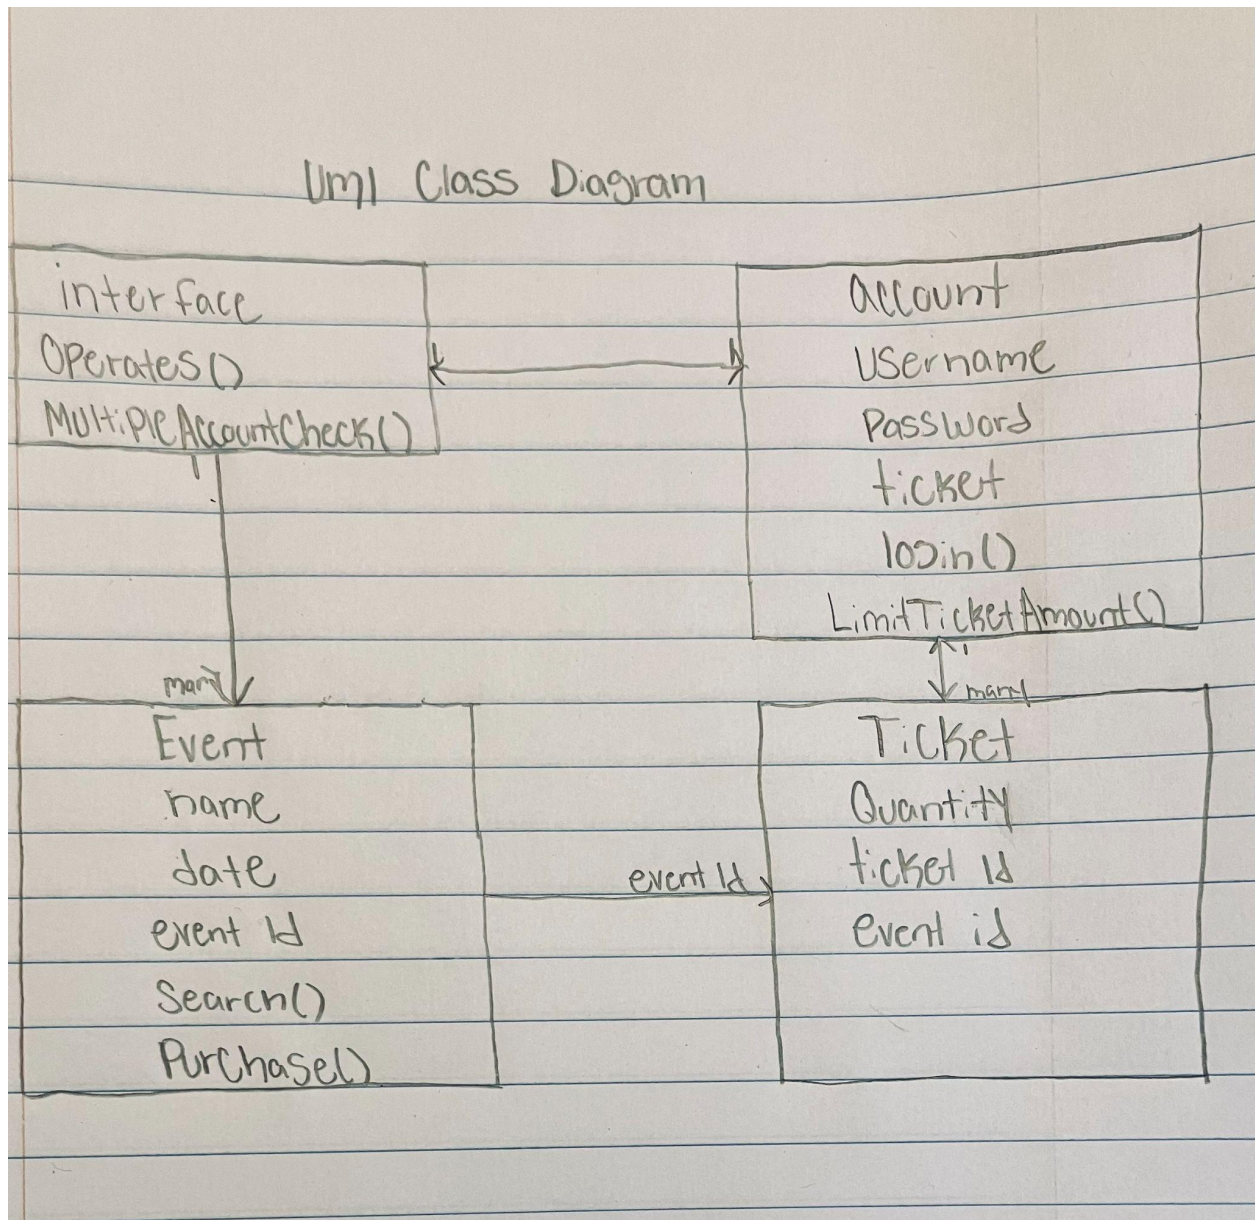 Uml Class Diagram
interface
Operates()
MultipleAccountCheck()
account
Username
Password
ticket
login()
LimitTicketAmount()
many
Event
name
date
event Id
Search()
Purchase()
event Id
many
Ticket
Quantity
ticket Id
event id